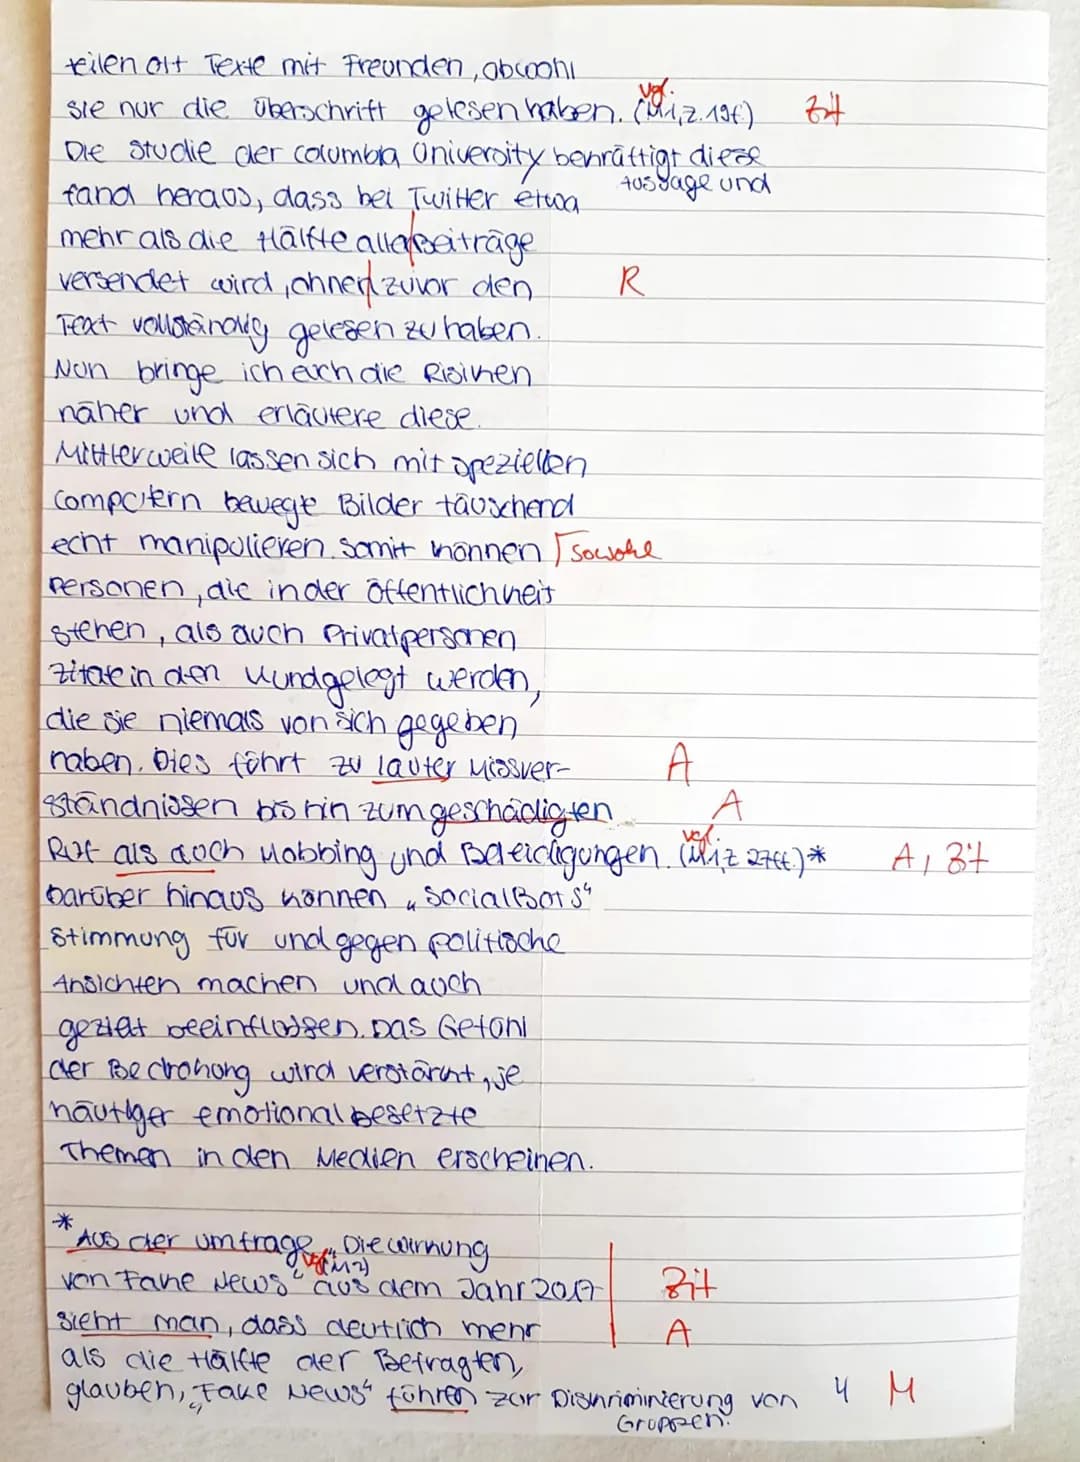 teilen oft Texte mit Freunden, obwohl
sie nur die Überschrift gelesen haben. (vgl. M1, Z. 19f.) Zit
Die Studie der Columbia University bekräftigt diese
Aussage und
fand heraus, dass bei Twitter etwa
mehr als die Hälfte aller Beiträge
versendet wird, ohne zuvor den R
Text vollständig gelesen zu haben.
Nun bringe ich euch die Risiken
näher und erläutere diese.
Mittlerweile lassen sich mit speziellen
Computern bewegte Bilder täuschend
echt manipulieren. Somit können sowohl
Personen, die in der Öffentlichkeit
stehen, als auch Privatpersonen
Zitate in den Mund gelegt werden,
die sie niemals von sich gegeben
haben. Dies führt zu lauter Missver- A
ständnissen bis hin zum geschädigten A
Ruf als auch Mobbing und Beleidigungen. (vgl. M1, Z 27ff.)* A, Zit
Darüber hinaus können „Social Bots"
Stimmung für und gegen politische
Ansichten machen und auch
gezielt beeinflussen. Das Gefühl
der Bedrohung wird verstärkt, je
häufiger emotional besetzte
Themen in den Medien erscheinen.
* Aus der Umfrage „Die Wirkung
von Fake News" (vgl. M2) aus dem Jahr 2017 Zit
sieht man, dass deutlich mehr A
als die Hälfte der Befragten,
glauben, „Fake News" führen zur Diskriminierung von 4 M
Gruppen.